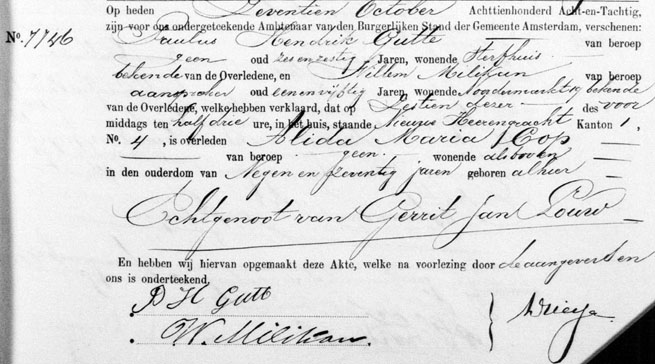 Op heden Zeventien October Achttienhonderd Acht-en-Tachtig,
zijn voor ons ondergeteekende Ambtenaar van den Burgerlijken Stand der Gemeente Amsterdam, verschenen:
No. 7746 Paulus Hendrik Gutte van beroep
geen oud zesenzestig Jaren, wonende Sterfhuis
bekende van de Overledene, en Willem Milikan van beroep
aanspreker oud eenenvijftig Jaren, wonende bekende
van de Overledene, welke hebben verklaard, dat op Zestien dezer des voor
middags ten half drie ure, in het huis, staande Nieuwe Heerengracht Kanton 1,
No. 4, is overleden Alida Maria Cop
van beroep geen wonende als boven
in den ouderdom van Negen en zeventig jaren geboren alhier
Echtgenoot van Gerrit Jan Pouw
En hebben wij hiervan opgemaakt deze Akte, welke na voorlezing door de aangevers en
ons is onderteekend,
P H Gutte
W. Milikan.